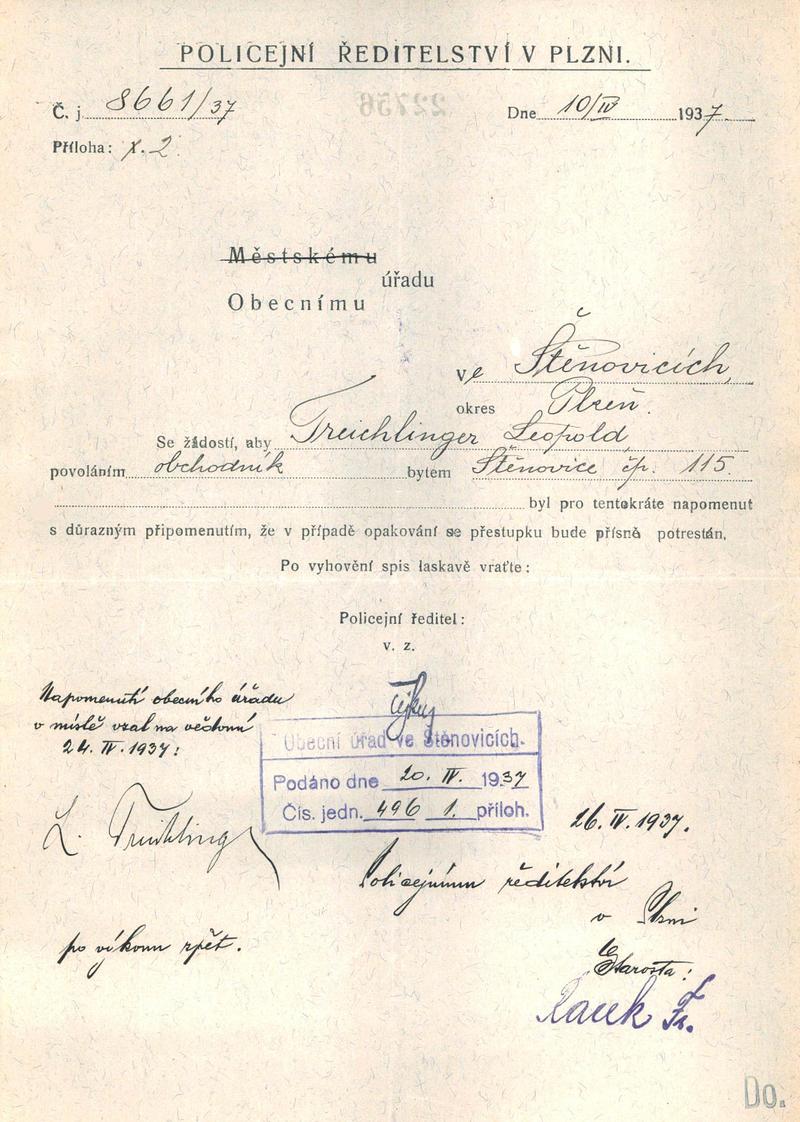 POLICEJNÍ ŘEDITELSTVÍ V PLZNI.
Č. j. 8661/37
Dne 10/IV 1937
Příloha: 1. 2
Městskému
úřadu
Obecnímu
ve Štěnovicích,
okres Plzeň.
Se žádostí, aby Treichlinger Leopold,
povoláním obchodník bytem Štěnovice čp. 115.
byl pro tentokráte napomenut
s důrazným připomenutím, že v případě opakování se přestupku bude přísně potrestán.
Po vyhovění spis laskavě vraťte:
Policejní ředitel:
v. z.
Napomenutí obecního úřadu
v místě vzal na vědomí
24. IV. 1937:
Obecní úřad ve Štěnovicích.
Podáno dne 20. IV. 1937
Čís. jedn. 496 1. příloh.
L. Treichlinger
26. IV. 1937.
Policejnímu ředitelství
v Plzni
po výkonu zpět.
Starosta:
Racek Fr.
Do.